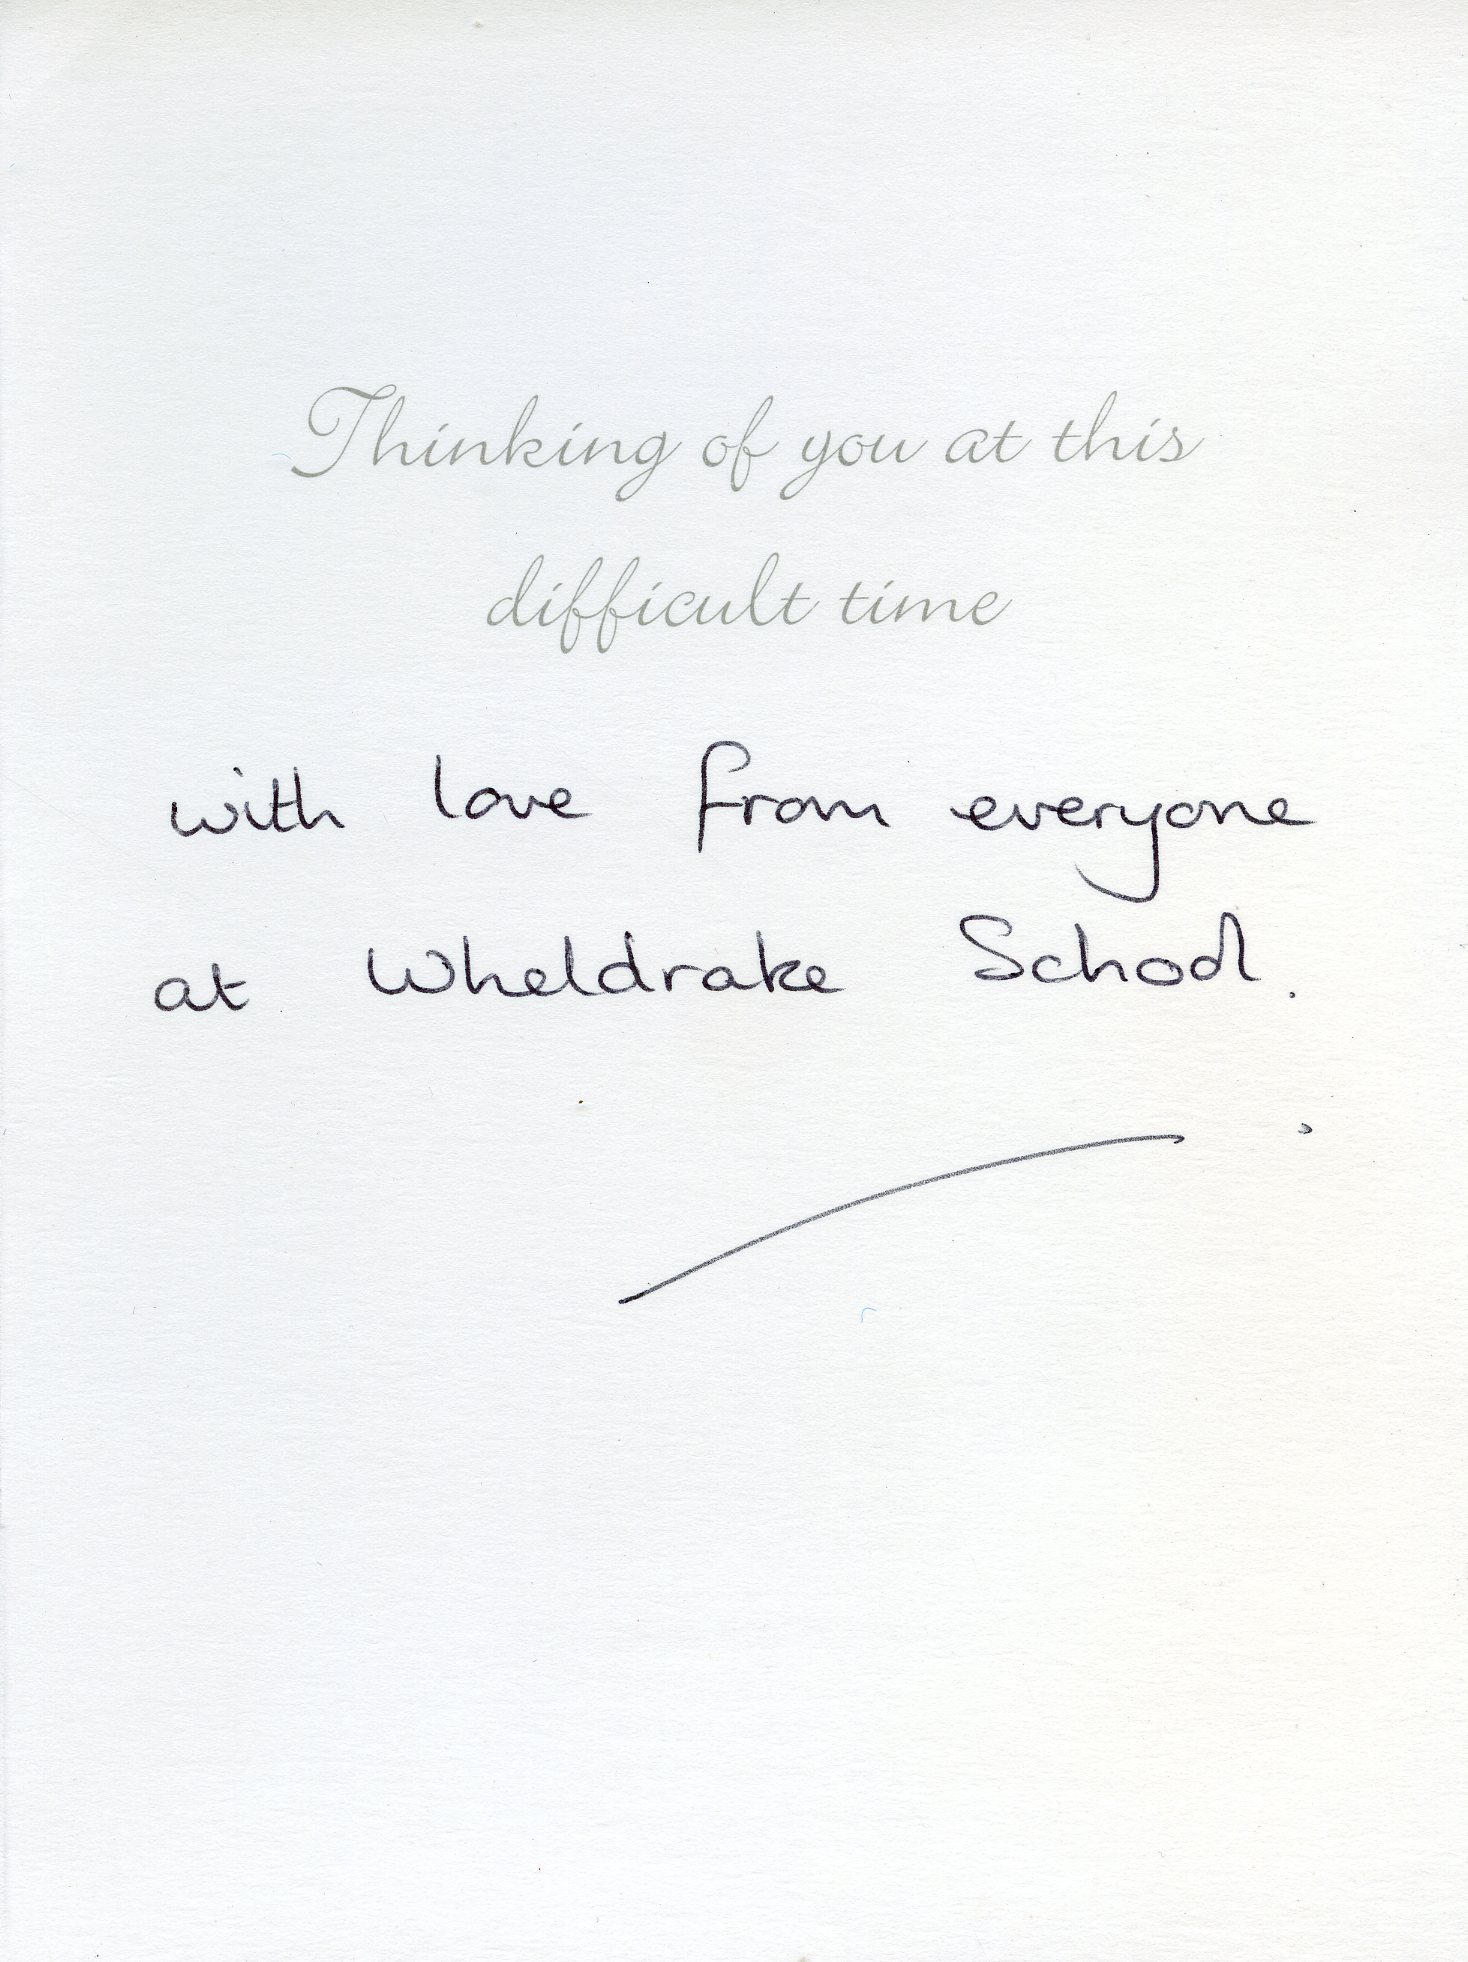 Thinking of you at this
difficult time
with love from everyone
at Wheldrake School.